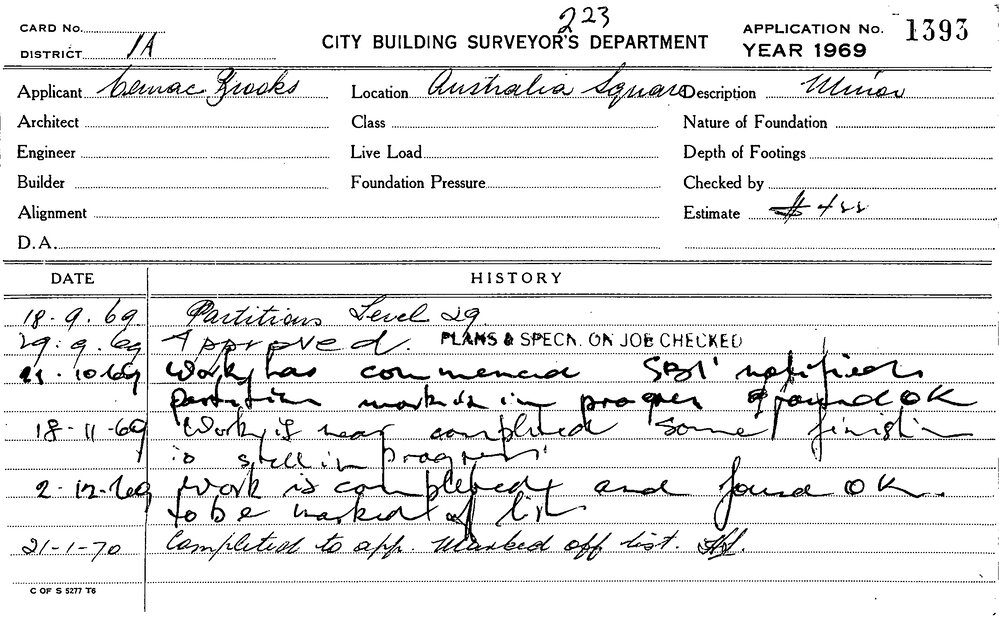 223
CARD No.
DISTRICT 1A
CITY BUILDING SURVEYOR'S DEPARTMENT
APPLICATION No. 1393
YEAR 1969
Applicant Cemac Brooks Location Australia Square Description Minor
Architect Class Nature of Foundation
Engineer Live Load Depth of Footings
Builder Foundation Pressure Checked by
Alignment Estimate $400
D.A.
DATE HISTORY
18.9.69 Partitions Level 29
29.9.69 Approved. PLANS & SPECN. ON JOB CHECKED
10.69 Work has commenced notified
partition work is in progres found OK
18-11-69 Work is near completed Some finishin
is still in progress
2-12-69 Work is completed and found OK.
to be marked off list
21-1-70 Completed to app. Marked off list.
C OF S 5277 T6